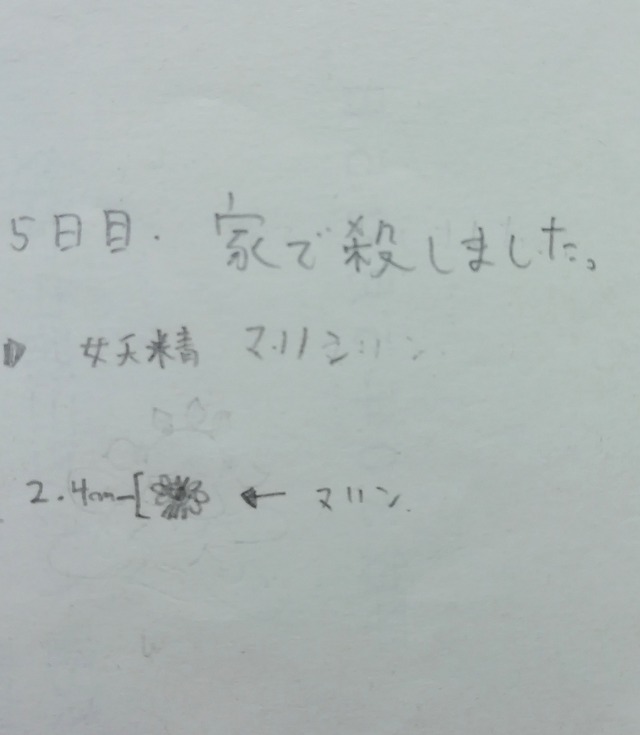 5日目. 家で殺しました。
妖精 マリン
2.4cm ← マリン.